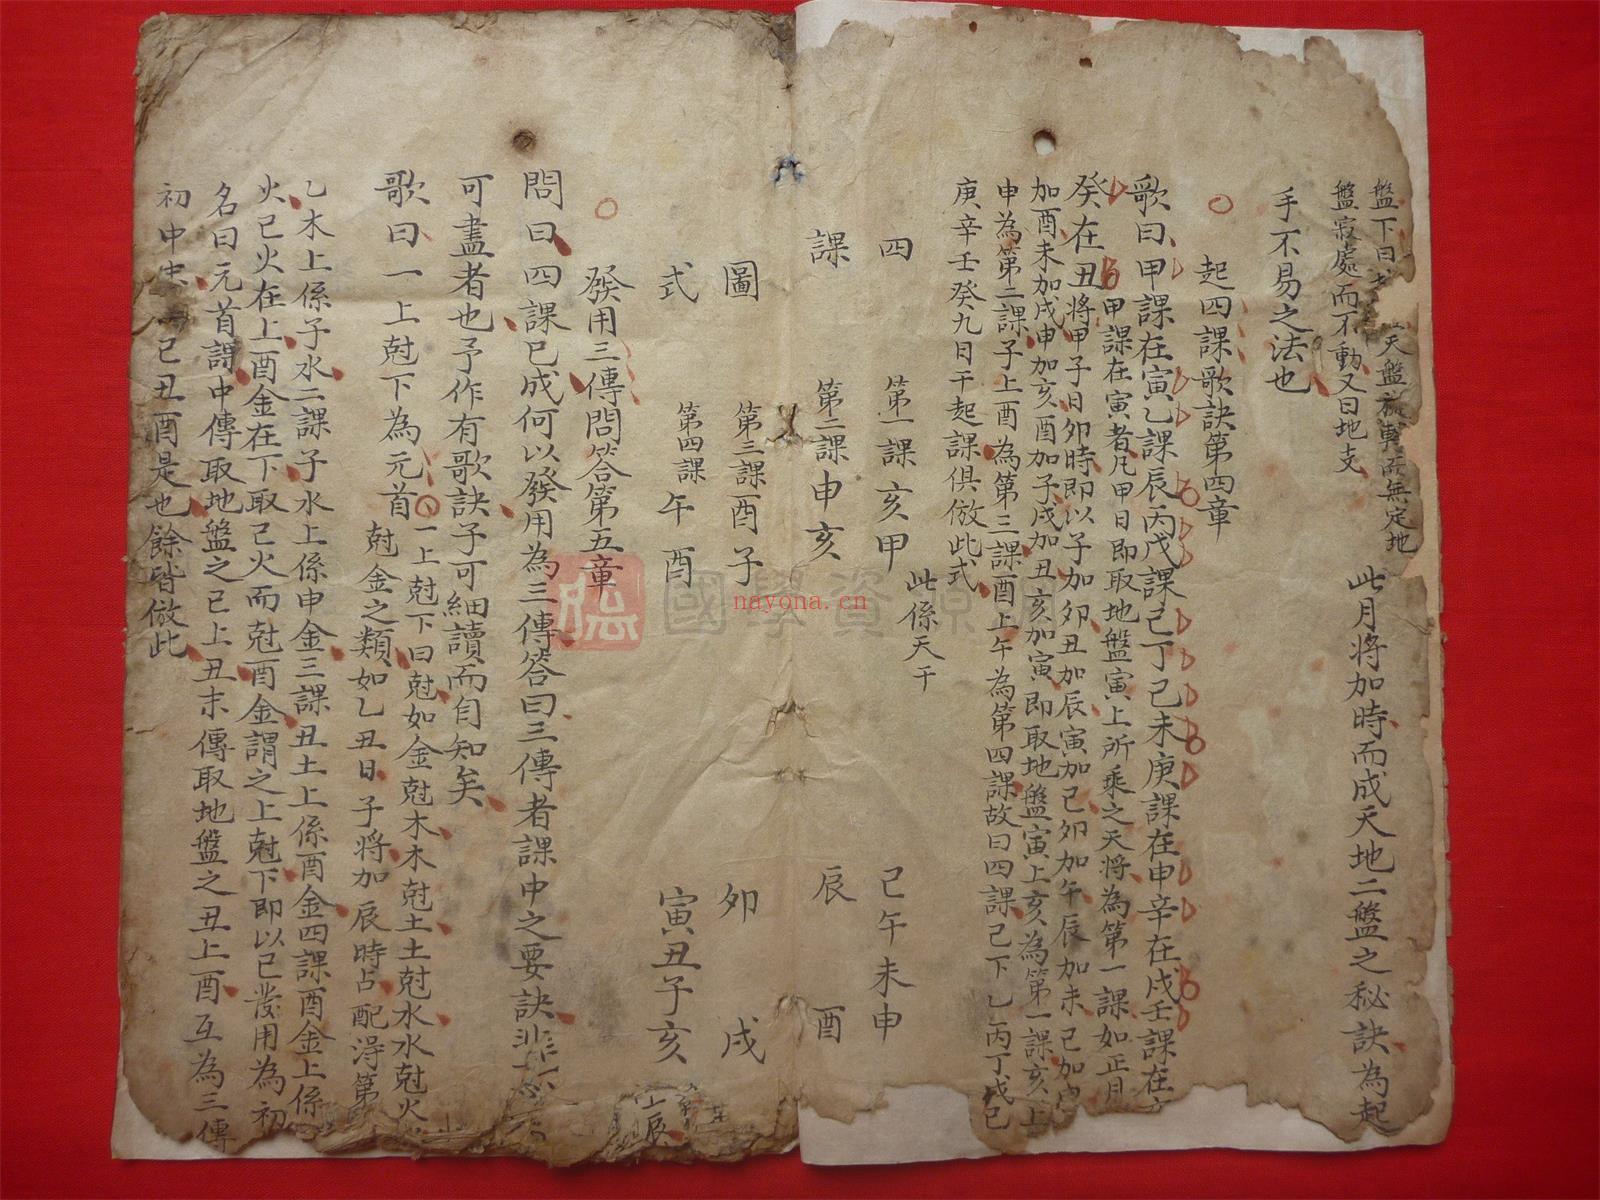 盤下曰 天盤 而無定地
盤寂處而不動又曰地支
此月將加時而成天地二盤之秘訣為起
手不易之法也
起四課歌訣第四章
歌曰甲課在寅乙課辰丙戊課巳丁己未庚課在申辛在戌壬課在
癸在丑將甲子日卯時即以子加卯丑加辰寅加巳卯加午辰加未巳加
甲課在寅者凡甲日即取地盤寅上所乘之天將為第一課如正月
加酉未加戌申加亥酉加子戌加丑亥加寅即取地盤寅上亥為第一課亥上
申為第二課子上酉為第三課酉上午為第四課故曰四課己下乙丙丁戊己
庚辛壬癸九日干起課俱倣此式
四 第一課亥甲 此係天干 巳午未申
課 第二課申亥 辰 酉
圖 第三課酉子 卯 戌
式 第四課午酉 寅丑子亥
發用三傳問答第五章
問曰四課已成何以發用為三傳答曰三傳者課中之要訣非
可盡者也予作有歌訣子可細讀而自知矣
歌曰一上尅下為元首
一上尅下曰尅如金尅木木尅土土尅水水尅火
尅金之類如乙丑日子將加辰時占配得第
乙木上係子水二課子水上係申金三課丑土上係酉金四課酉金上係
火巳火在上酉金在下取巳火而尅酉金謂之上尅下即以巳發用為初
名曰元首謂中傳取地盤之巳上丑末傳取地盤之丑上酉互為三傳
初中 巳丑酉是也餘皆倣此
國學資源
nayona.cn